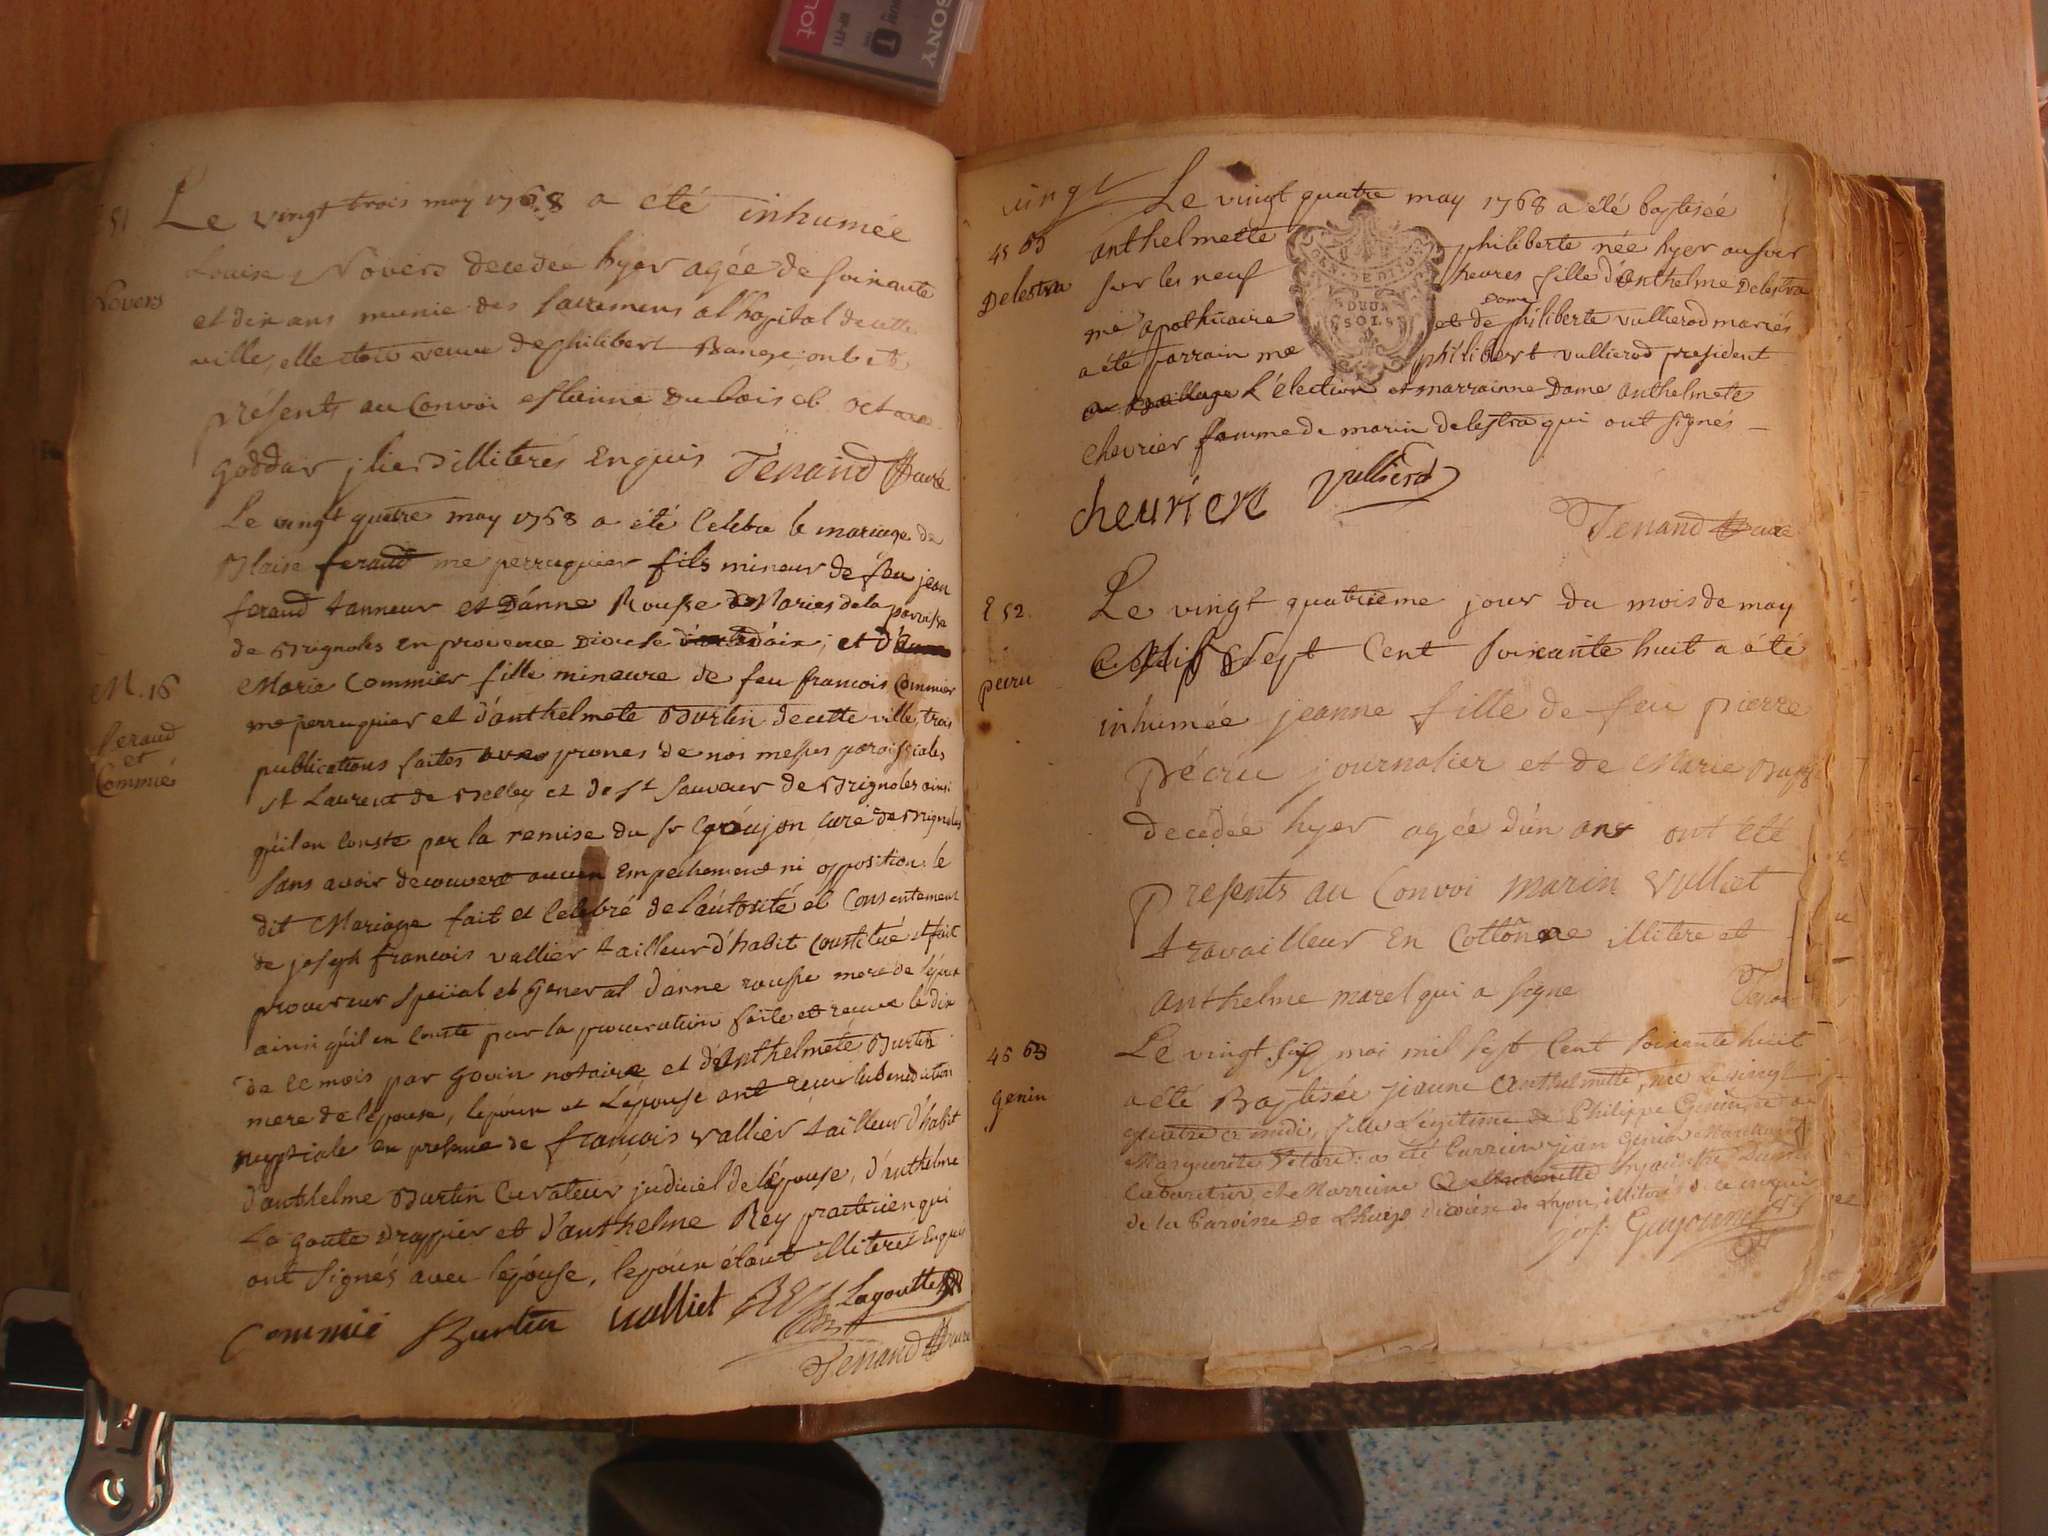 SONY
51 Le vingt trois may 1768 a été inhumée
Louise Novers decedee hyer agée de soixante
Novers
et dix ans munie des sacremens a l'hopital de cette
ville, elle etoit veuve de philibert Bange; ont eté
présents au Convoi estienne Dubois et octave
goddar jlier illiterés Enquis Tenand Curé
Le vingt quatre may 1768 a été Celebré le mariage de
Blaise feraud me perruquier fils mineur de feu jean
feraud tanneur et D'anne Rousse Maries de la paroisse
de Brignoles En provence Diocese d'aix; et d'
M. 16
Marie Commier fille mineure de feu francois Commier
me perruquier et d'anthelmete Burtin de cette ville, trois
feraud
et
Commié
publications faites aux prones de nos messes paroissiales
st Laurent de Belley et de st Sauveur de Brignoles ainsi
qu'il en Conste par la remise du sr Goujon Curé de Brignoles
sans avoir découvert aucun Empechement ni opposition: le
dit Mariage fait et Celebré de l'autorité et Consentement
de joseph francois vallier tailleur d'habit Constitué et fait
procureur special et general d'anne rousse mere de l'epoux
ainsi qu'il en Conste par la procuration faite et recue le dix
de ce mois par govin notaire et d'Anthelmete Burtin
mere de l'epouse, l'epoux et L'epouse ont recu la benediction
nuptiale en presence de françois vallier tailleur d'habit
d'anthelme Burtin Curateur judiciel de l'épouse, d'anthelme
La goute drappier et d'anthelme Rey practicien qui
ont signés avec l'epouse, l'epoux étant illiteré Enquis
Commié Burtin valliet REY Lagoutte
Tenand Curé
vingt
Le vingt quatre may 1768 a été baptisée
45 B
anthelmette philiberte née hyer au soir
Delestra
sur les neuf heures fille d'Anthelme Delestra
DEUX SOLS
me apothicaire et de Dame philiberte vullierod mariés
a été parrain me philibert vullierod president
L'élection et marrainne Dame anthelmete
Chevrier famme de marin delestra qui ont signés
cheuriere vullierod
Tenand Curé
S 52
Le vingt quatrieme jour du mois de may
Mil Sept Cent Soixante huit a été
pecru
inhumée jeanne fille de feu pierre
Pécru journalier et de Marie
decédée hyer agée d'un ans ont été
présents au Convoi marin Vulliet
travailleur En Cottonne illitere et
anthelme morel qui a signe
46 B
genin
Le vingt six mai mil sept Cent soixante huit
a été Baptisée jeanne Anthelmette, née Le vingt
quatre a midi, fille Légitime de Philippe Genin et de
Marguerite Vetard: a été Parrein jean Genin Marchand
Cabaretier, et Marreine
de la Paroisse de Lhuis diocèse de Lyon, illiterés de ce enquis
jos. Guyonnet